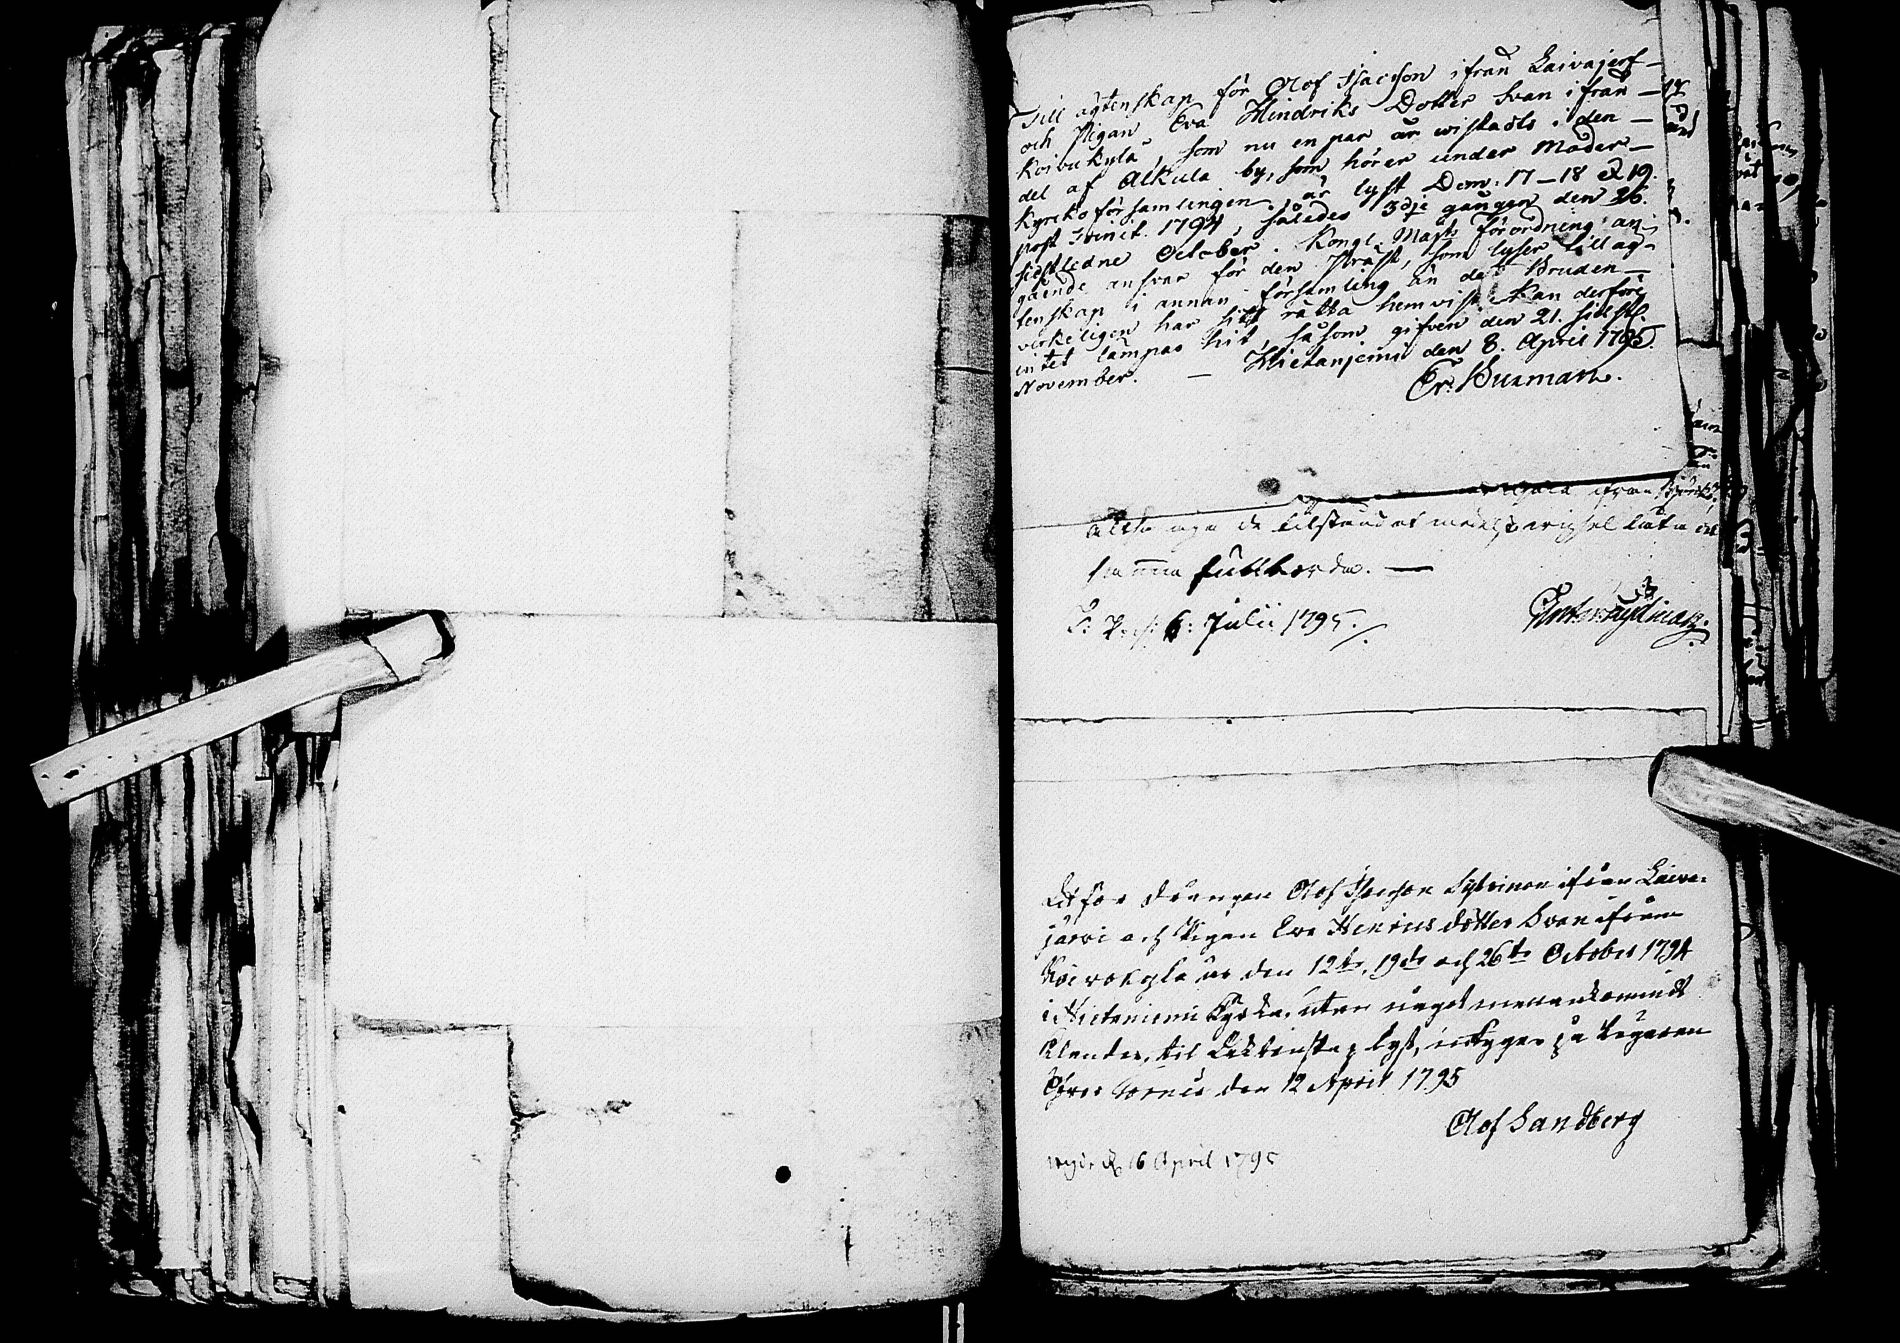 Till ägtenskap för Olof Isacsson ifrån Laivajerf-
och Pigan Eva Hindriks Dotter Svan ifrån -
Koivukylä, som nu en par år wistads i den -
del af Alkula by, som hörer under Moder-
kyrkoförsamlingen är lyst Dom: 17 - 18 & 19.
post Trinit. 1794, således 3dje gången den 26.
sistledne October. Kongl. Majts förordning an-
gående ansvar för den Präst, som lyser till äg-
tenskap i annan församling än der Bruden -
verkeligen har sitt rätta hemvist kan derföre
intet lämpas hit, såsom gifven den 21. sidstl.
November. - Hietaniemi den 8. April 1795.
Er. Burman.
ifrån
Altså äga de tilståndet medelst wigsel låta
samma fullborda. -
6: Julii 1795.
Utför drängen Olof Isacsson ifrån Laiva-
järvi och Pigan Eva Henricsdotter Svan ifrån
Koivokylä är den 12te, 19de och 26te October 1794
i Hietaniemi Kyrka, utan något
Klander, til Ecktenskap lyst, intygar på begäran
Öfver Torneå den 12 April 1795
Olof Sandberg
16 April 1795